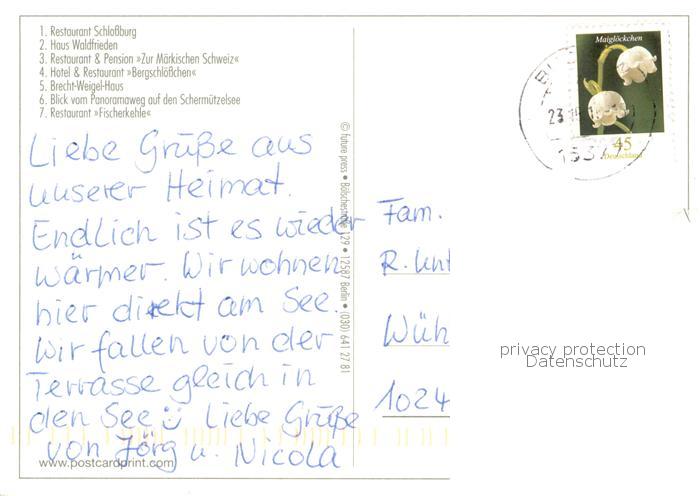 1. Restaurant Schloßburg
2. Haus Waldfrieden
3. Restaurant & Pension »Zur Märkischen Schweiz«
4. Hotel & Restaurant »Bergschlößchen«
5. Brecht-Weigel-Haus
6. Blick vom Panoramaweg auf den Schermützelsee
7. Restaurant »Fischerkehle«
Liebe Grüße aus
unserer Heimat.
Endlich ist es wieder
wärmer. Wir wohnen
hier direkt am See.
Wir fallen von der
Terrasse gleich in
den See☺ Liebe Grüße
von Jörg u. Nicola
www.postcardprint.com
© future press • Bölschestraße 129 • 12587 Berlin • (030) 641 27 81
Maiglöckchen
45
Deutschland
23
Fam.
R. Unt
Wüh
1024
privacy protection
Datenschutz